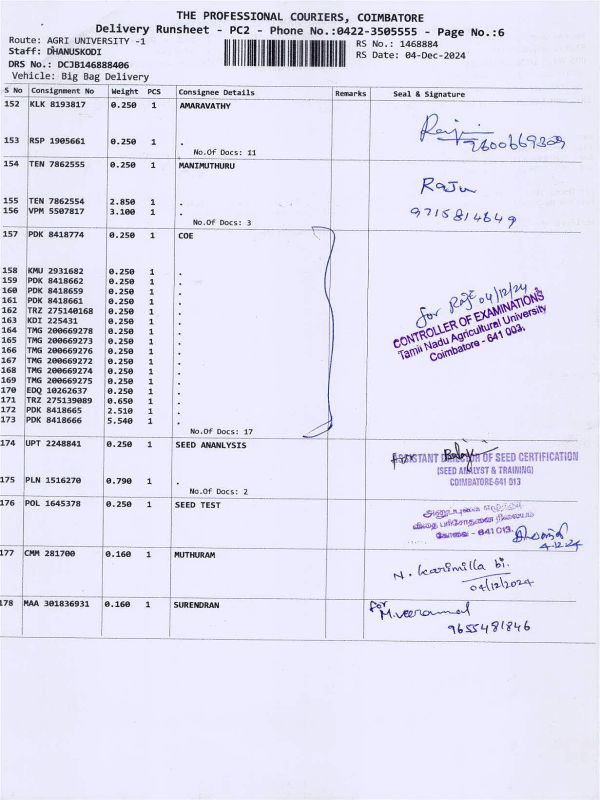 THE PROFESSIONAL COURIERS, COIMBATORE
Delivery Runsheet - PC2 - Phone No.:0422-3505555 - Page No.:6
Route: AGRI UNIVERSITY -1
RS No.: 1468884
Staff: DHANUSKODI
RS Date: 04-Dec-2024
DRS No.: DCJB146888406
Vehicle: Big Bag Delivery
S No Consignment No Weight PCS Consignee Details Remarks Seal & Signature
152 KLK 8193817 0.250 1 AMARAVATHY
153 RSP 1905661 0.250 1 .
No.Of Docs: 11
9600669309
154 TEN 7862555 0.250 1 MANIMUTHURU
Raju
155 TEN 7862554 2.850 1 .
156 VPM 5507817 3.100 1 .
9715814649
No.Of Docs: 3
157 PDK 8418774 0.250 1 COE
158 KMU 2931682 0.250 1 .
159 PDK 8418662 0.250 1 .
160 PDK 8418659 0.250 1 .
161 PDK 8418661 0.250 1 .
162 TRZ 275140168 0.250 1 .
163 KDI 225431 0.250 1 .
164 TMG 200669278 0.250 1 .
165 TMG 200669273 0.250 1 .
166 TMG 200669276 0.250 1 .
167 TMG 200669272 0.250 1 .
168 TMG 200669274 0.250 1 .
169 TMG 200669275 0.250 1 .
170 EDQ 10262637 0.250 1 .
171 TRZ 275139089 0.650 1 .
172 PDK 8418665 2.510 1 .
173 PDK 8418666 5.540 1 .
No.Of Docs: 17
for 04/12/24
CONTROLLER OF EXAMINATIONS
Tamil Nadu Agricultural University
Coimbatore - 641 003.
174 UPT 2248841 0.250 1 SEED ANANLYSIS
for Balaji
ASSISTANT DIRECTOR OF SEED CERTIFICATION
(SEED ANALYST & TRAINING)
COIMBATORE-641 013
175 PLN 1516270 0.790 1 .
No.Of Docs: 2
176 POL 1645378 0.250 1 SEED TEST
விதை பரிசோதனை நிலையம்
கோவை - 641 013.
4.12.24
177 CMM 281700 0.160 1 MUTHURAM
N. Karimilla bi.
04/12/2024
178 MAA 301836931 0.160 1 SURENDRAN
for
M.Veerammal
9655481846